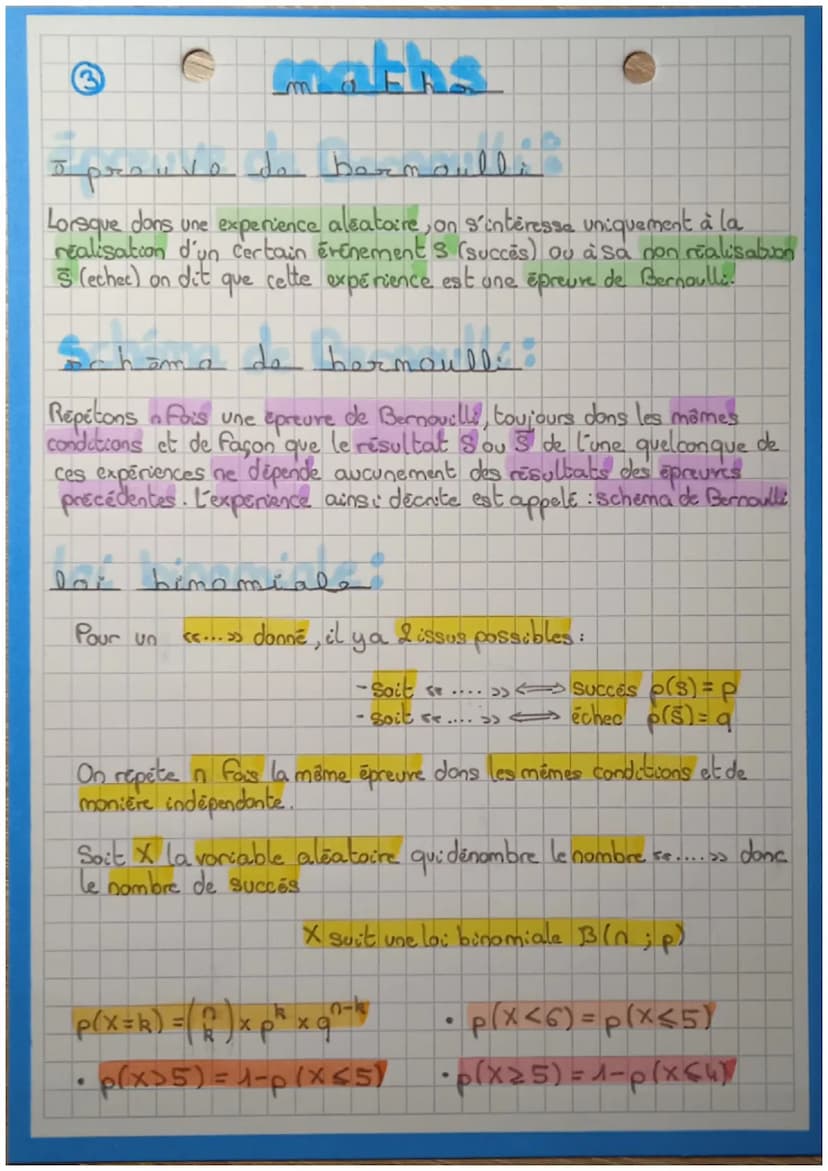 ③
maths
épreuve de bernoulli:
Lorsque dans une experience aléatoire, on s'intéresse uniquement à la
réalisation d'un certain évènement S (succès) ou à sa non réalisation
S̅ (echec) on dit que cette expérience est une épreuve de Bernoulli.
Schéma de bernoulli:
Répétons n fois une épreuve de Bernouilli, toujours dans les mêmes
conditions et de façon que le résultat S ou S̅ de l'une quelconque de
ces expériences ne dépende aucunement des résultats des épreuves
précédentes. L'expérience ainsi décrite est appelé : schéma de Bernoulli
loi binomiale:
Pour un «....» donné, il y a 2 issus possibles :
- Soit «....» ⟺ succès p(S) = p
- Soit «....» ⟺ échec p(S̅) = q
On répète n fois la même épreuve dans les mêmes conditions et de
manière indépendante.
Soit X la variable aléatoire qui dénombre le nombre «....» donc
le nombre de succès
X suit une loi binomiale B(n ; p)
p(X=k) = (n k) x p^k x q^(n-k) • p(X<6) = p(X⩽5)
• p(X>5) = 1-p(X⩽5) • p(X⩾5) = 1-p(X⩽4)